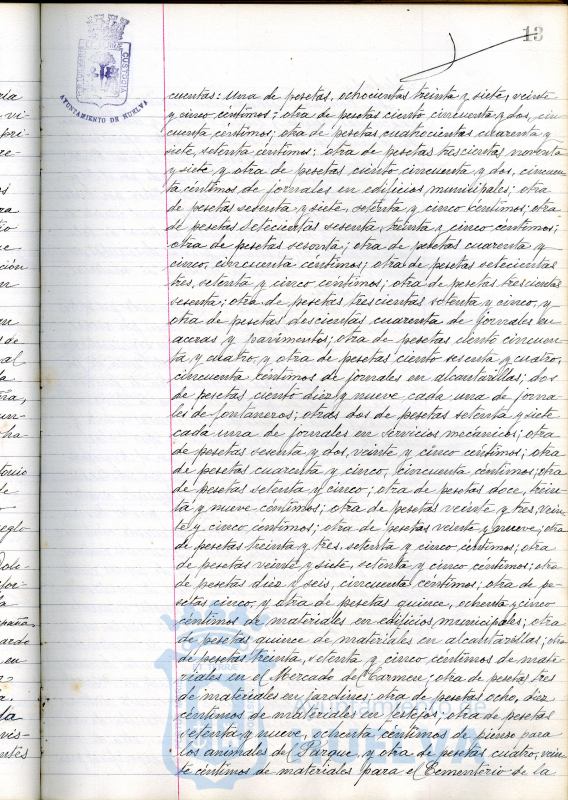 13
CUSTODIA
AYUNTAMIENTO DE HUELVA
cuentas: una de pesetas, ochocientas treinta y siete, veinte
y cinco céntimos; otra de pesetas ciento cincuenta y dos, cin-
cuenta céntimos; otra de pesetas cuatrocientas cuarenta y
siete, setenta céntimos; otra de pesetas trescientas noventa
y siete y otra de pesetas ciento cincuenta y dos, cincuen-
ta céntimos de jornales en edificios municipales; otra
de pesetas sesenta y siete, setenta y cinco céntimos; otra
de pesetas setecientas sesenta, treinta y cinco céntimos;
otra de pesetas sesenta; otra de pesetas cuarenta y
cinco, cincuenta céntimos; otra de pesetas setecientas
tres, setenta y cinco céntimos; otra de pesetas trescientas
sesenta; otra de pesetas trescientas setenta y cinco, y
otra de pesetas descientas cuarenta de jornales en
aceras y pavimentos; otra de pesetas ciento cincuen-
ta y cuatro, y otra de pesetas ciento sesenta y cuatro,
cincuenta céntimos de jornales en alcantarillas; dos
de pesetas ciento diez y nueve cada una de jorna-
les de fontaneros; otras dos de pesetas setenta y siete
cada una de jornales en servicios mecánicos; otra
de pesetas sesenta y dos, veinte y cinco céntimos; otra
de pesetas cuarenta y cinco, cincuenta céntimos; otra
de pesetas setenta y cinco; otra de pesetas doce, trein-
ta y nueve céntimos; otra de pesetas veinte y tres, vein-
te y cinco céntimos; otra de pesetas veinte y nueve; otra
de pesetas treinta y tres, setenta y cinco céntimos; otra
de pesetas veinte y siete, setenta y cinco céntimos; otra
de pesetas diez y seis, cincuenta céntimos; otra de pe-
setas cinco, y otra de pesetas quince, ochenta y cinco
céntimos de materiales en edificios municipales; otra
de pesetas quince de materiales en alcantarillas; otra
de pesetas treinta, setenta y cinco céntimos de mate-
riales en el Mercado del Carmen; otra de pesetas tres
de materiales en jardines; otra de pesetas ocho, diez
céntimos de materiales en festejos; otra de pesetas
setenta y nueve, ochenta céntimos de pienso para
los animales del Parque, y otra de pesetas cuatro, vein-
te céntimos de materiales para el Cementerio de la
Ayuntamiento de